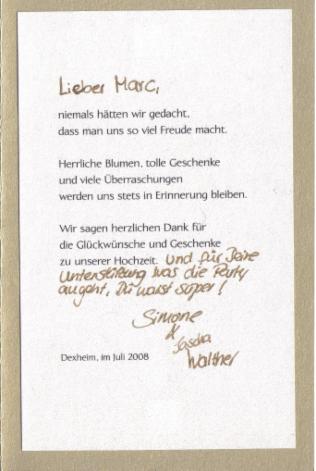 Lieber Marc,
niemals hätten wir gedacht,
dass man uns so viel Freude macht.
Herrliche Blumen, tolle Geschenke
und viele Überraschungen
werden uns stets in Erinnerung bleiben.
Wir sagen herzlichen Dank für
die Glückwünsche und Geschenke
zu unserer Hochzeit. Und für Deine
Unterstützung was die Party
angeht, Du warst super!
Simone
&
Sascha
Walther
Dexheim, im Juli 2008